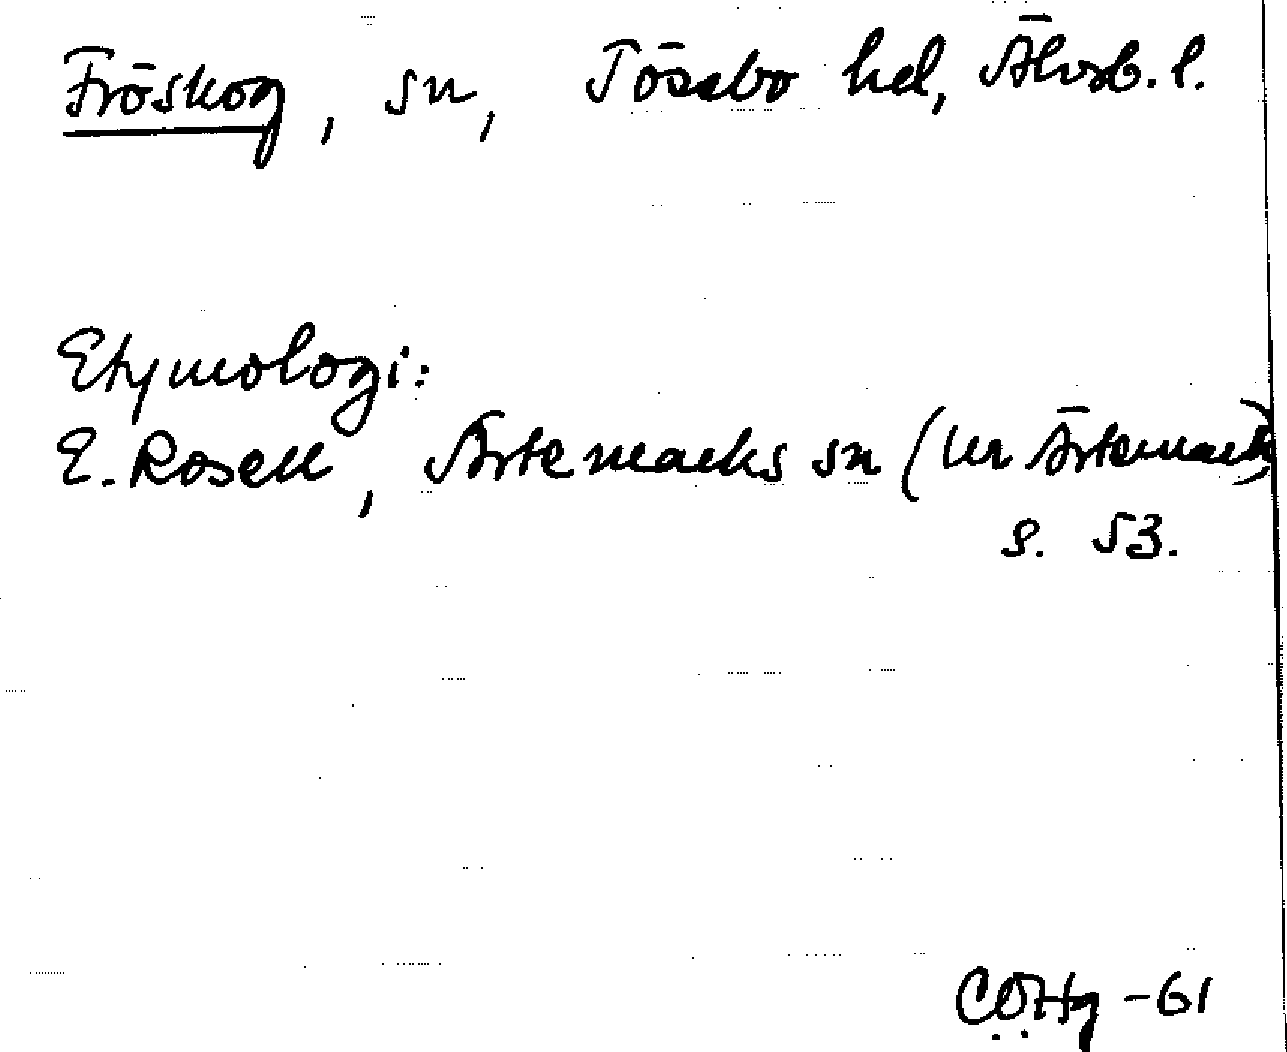 Fröskog, sn, Tössbo hd, Älvsb. l.
Etymologi:
E. Rosell, Ärtemarks sn (ur Ärtemark)
s. 53.
COHg -61